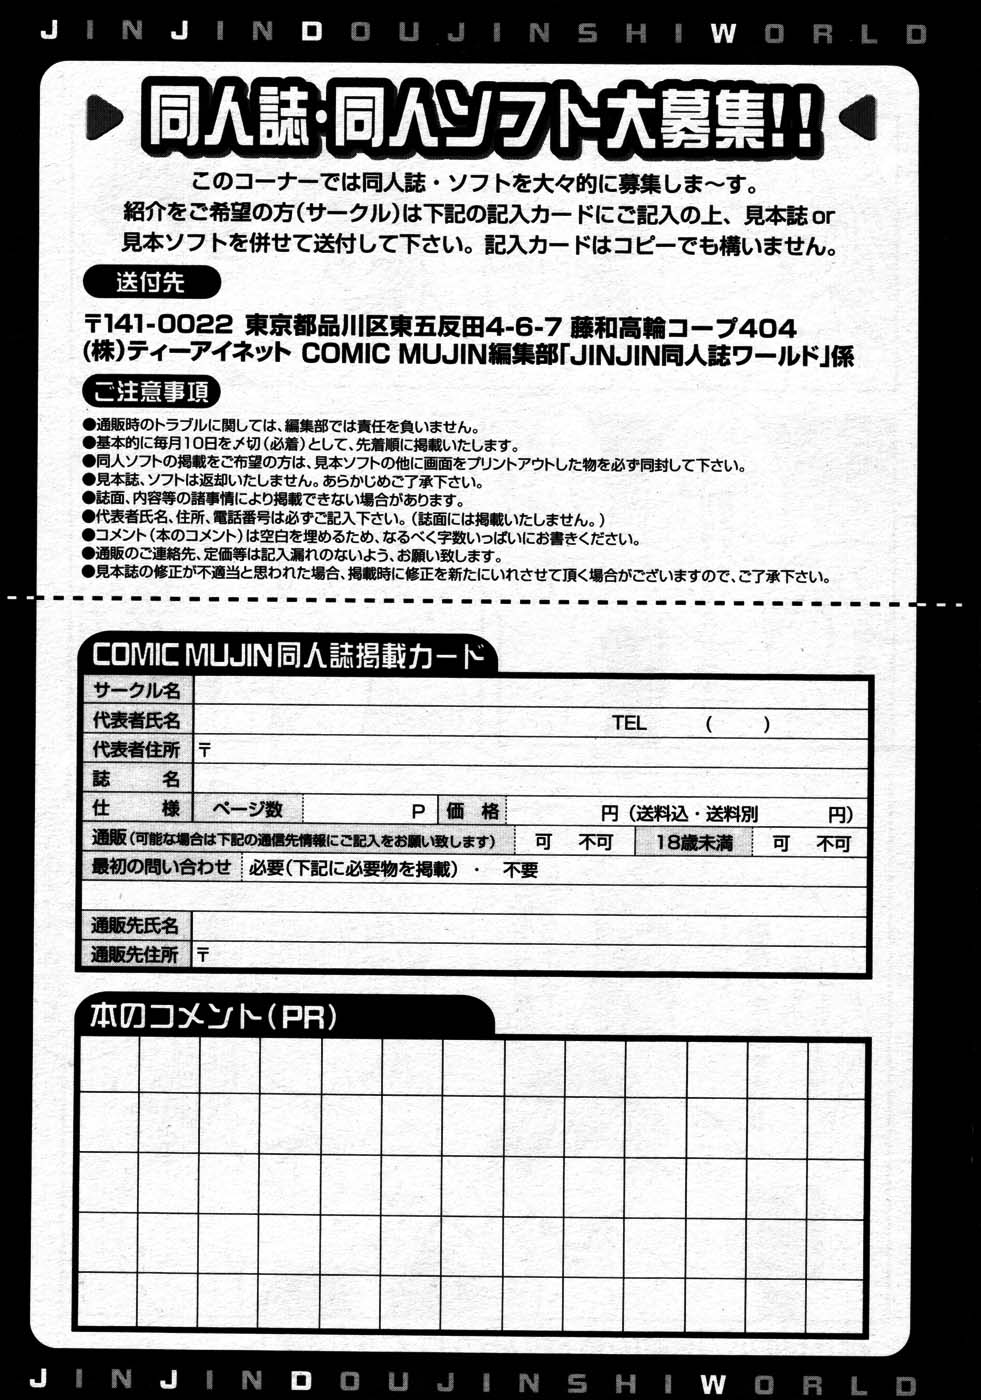 JINJINDOUJINSHIWORLD
同人誌・同人ソフト大募集!!
このコーナーでは同人誌・ソフトを大々的に募集しま〜す。
紹介をご希望の方(サークル)は下記の記入カードにご記入の上、見本誌or
見本ソフトを併せて送付して下さい。記入カードはコピーでも構いません。
送付先
〒141-0022 東京都品川区東五反田4-6-7 藤和高輪コープ404
(株)ティーアイネット COMIC MUJIN編集部「JINJIN同人誌ワールド」係
ご注意事項
●通販時のトラブルに関しては、編集部では責任を負いません。
●基本的に毎月10日を〆切(必着)として、先着順に掲載いたします。
●同人ソフトの掲載をご希望の方は、見本ソフトの他に画面をプリントアウトした物を必ず同封して下さい。
●見本誌、ソフトは返却いたしません。あらかじめご了承下さい。
●誌面、内容等の諸事情により掲載できない場合があります。
●代表者氏名、住所、電話番号は必ずご記入下さい。(誌面には掲載いたしません。)
●コメント(本のコメント)は空白を埋めるため、なるべく字数いっぱいにお書きください。
●通販のご連絡先、定価等は記入漏れのないよう、お願い致します。
●見本誌の修正が不適当と思われた場合、掲載時に修正を新たにいれさせて頂く場合がございますので、ご了承下さい。
COMIC MUJIN同人誌掲載カード
サークル名
代表者氏名 TEL ( )
代表者住所 〒
誌 名
仕 様 ページ数 P 価 格 円(送料込・送料別 円)
通販(可能な場合は下記の通信先情報にご記入をお願い致します) 可 不可 18歳未満 可 不可
最初の問い合わせ 必要(下記に必要物を掲載) ・ 不要
通販先氏名
通販先住所 〒
本のコメント(PR)
JINJINDOUJINSHIWORLD